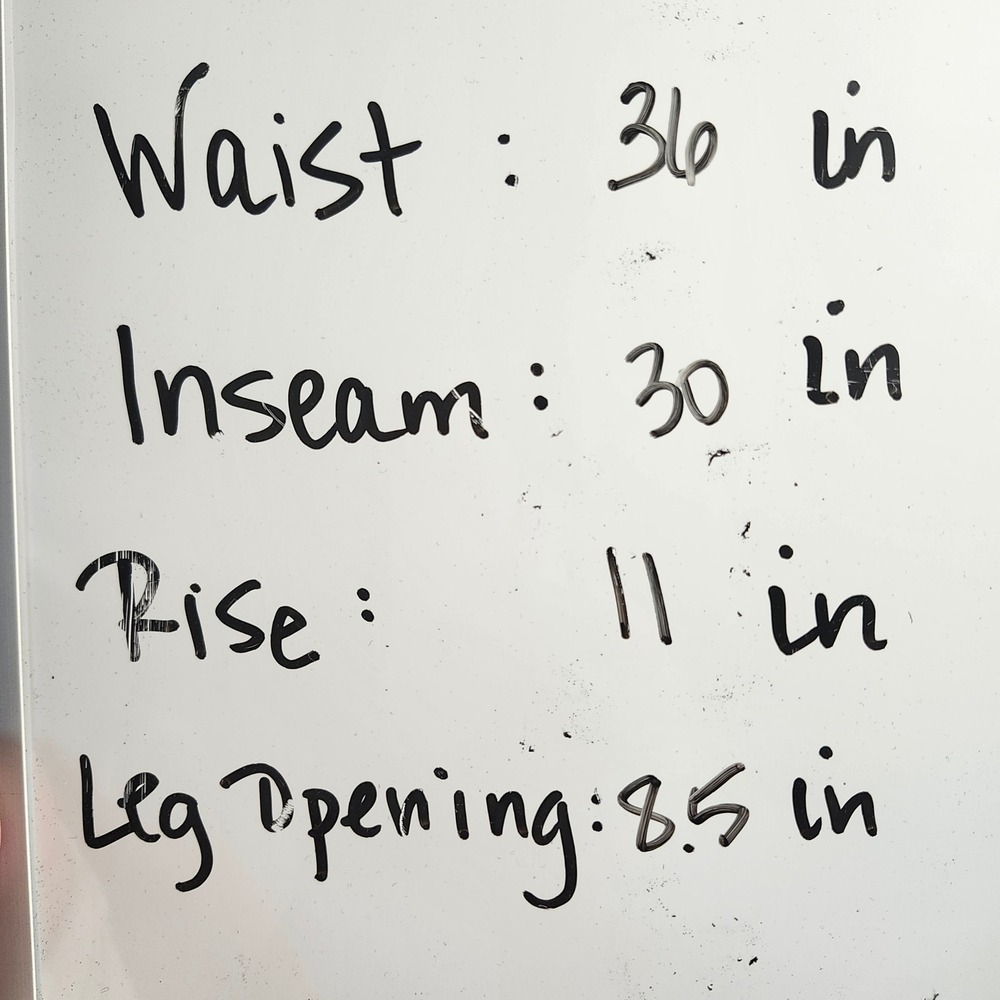 Waist : 36 in
Inseam : 30 in
Rise : 11 in
Leg Opening : 8.5 in